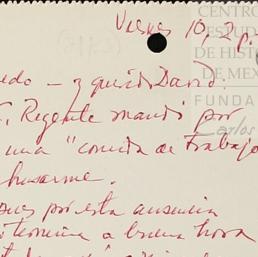 CENTRO
ESTUD
DE HIST
DE MEX
FUNDA
Carlos
Viernes 10, 2 p.
edo — y querido David:
Regente mandó por
una "comida de trabajo
busarme.
ues por esta ausencia
termina a buena hora